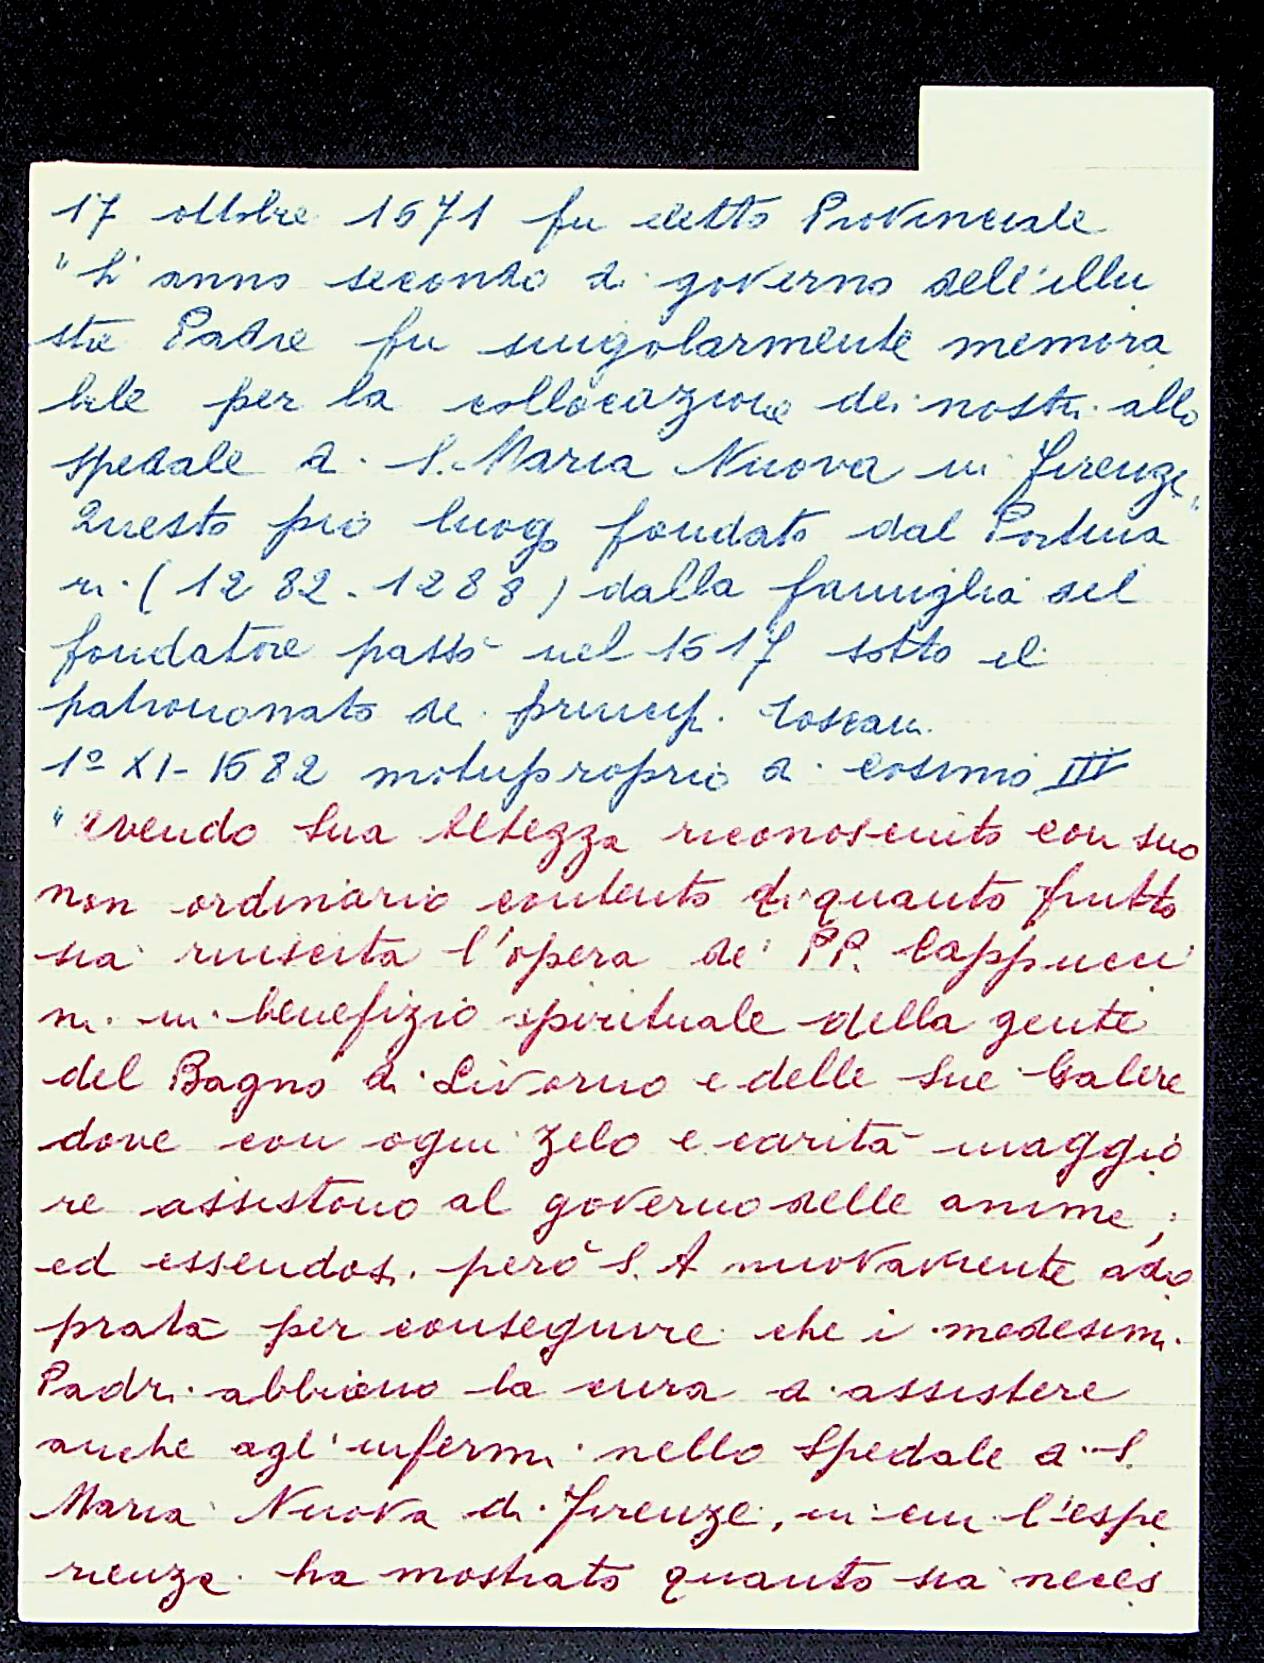 17 ottobre 1671 fu eletto Provinciale
"L'anno secondo di governo dell'illu
stre Padre fu singolarmente memora
bile per la collocazione dei nostri allo
spedale di S. Maria Nuova in Firenze"
Questo pio luogo fondato dal Portina
ri (1282-1288) dalla famiglia del
fondatore passò nel 1617 sotto il
patrouonato dei princip. toscani.
1º XI-1682 motuproprio di Cosimo III
"Avendo Sua Altezza riconosciuto con suo
non ordinario contento di quanto frutto
sia riuscita l'opera de' PP. Cappucci
ni in benefizio spirituale della gente
del Bagno di Livorno e delle Sue Galere
dove con ogni zelo e carità maggio
re assistono al governo delle anime;
ed essendosi però S. A nuovamente ado
prata per conseguire che i medesimi
Padri abbiano la cura di assistere
anche agl'infermi nello Spedale di S.
Maria Nuova di Firenze, in cui l'espe
rienza ha mostrato quanto sia neces